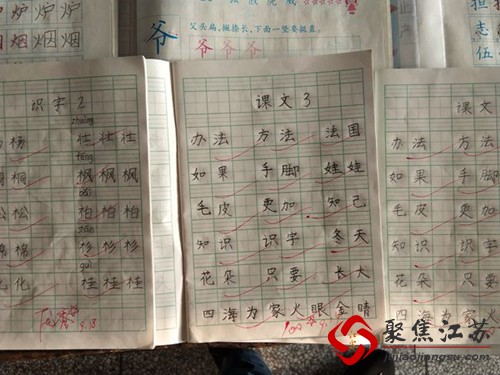 炉 炉 炉
烟 烟 烟
爷
父头扁，撇捺长，下面一竖要挺直。
爷 爷 爷
担
志
伍
识字2
zhuàng
杨 壮 壮 壮
fēng
桐 枫 枫 枫
松 松 柏 柏 柏
棉 棉 杉 杉 杉
guì
化 桂 桂 桂
9.18
课文3
办法 方法 法国
如果 手脚 娃娃
毛皮 更加 知己
知识 识字 冬天
花朵 只要 长大
四海为家火眼金睛
课文
办法 方法
如果 手脚
毛皮 更加
知识 识字
花朵 只要
四海为家火眼
聚焦江苏
jujiaojiangsu.com